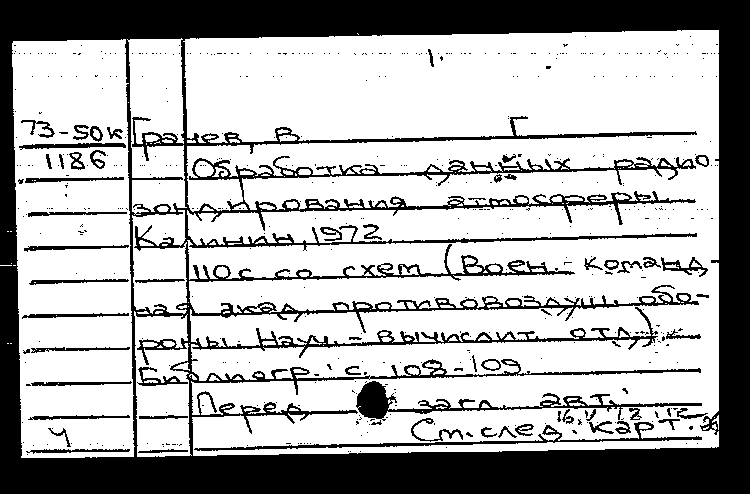 1.
73-50к Грачев, В Г
1186 Обработка данных радио-
зондирования атмосферы.
Калинин, 1972.
110 с со схем (Воен.-команд-
ная акад. противовоздуш. обо-
роны. Науч.-вычислит. отд.)
Библиогр.: с. 108-109.
Перед загл. авт.:
Ч Ст. след. карт.